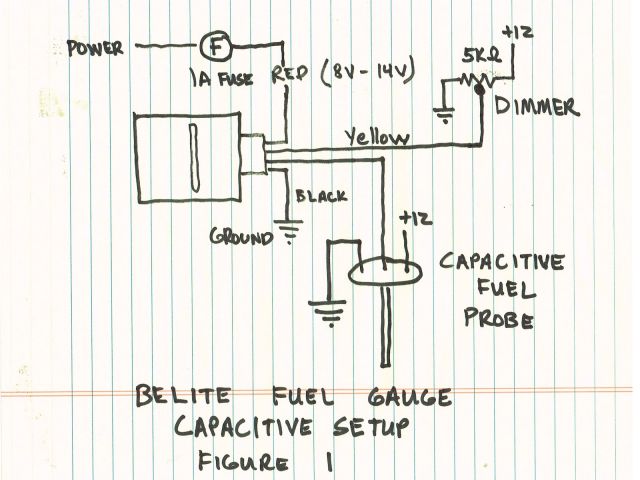 +12
POWER
F
5KΩ
1A FUSE RED (8V-14V)
DIMMER
Yellow
BLACK
GROUND
+12
CAPACITIVE
FUEL
PROBE
BELITE FUEL GAUGE
CAPACITIVE SETUP
FIGURE 1